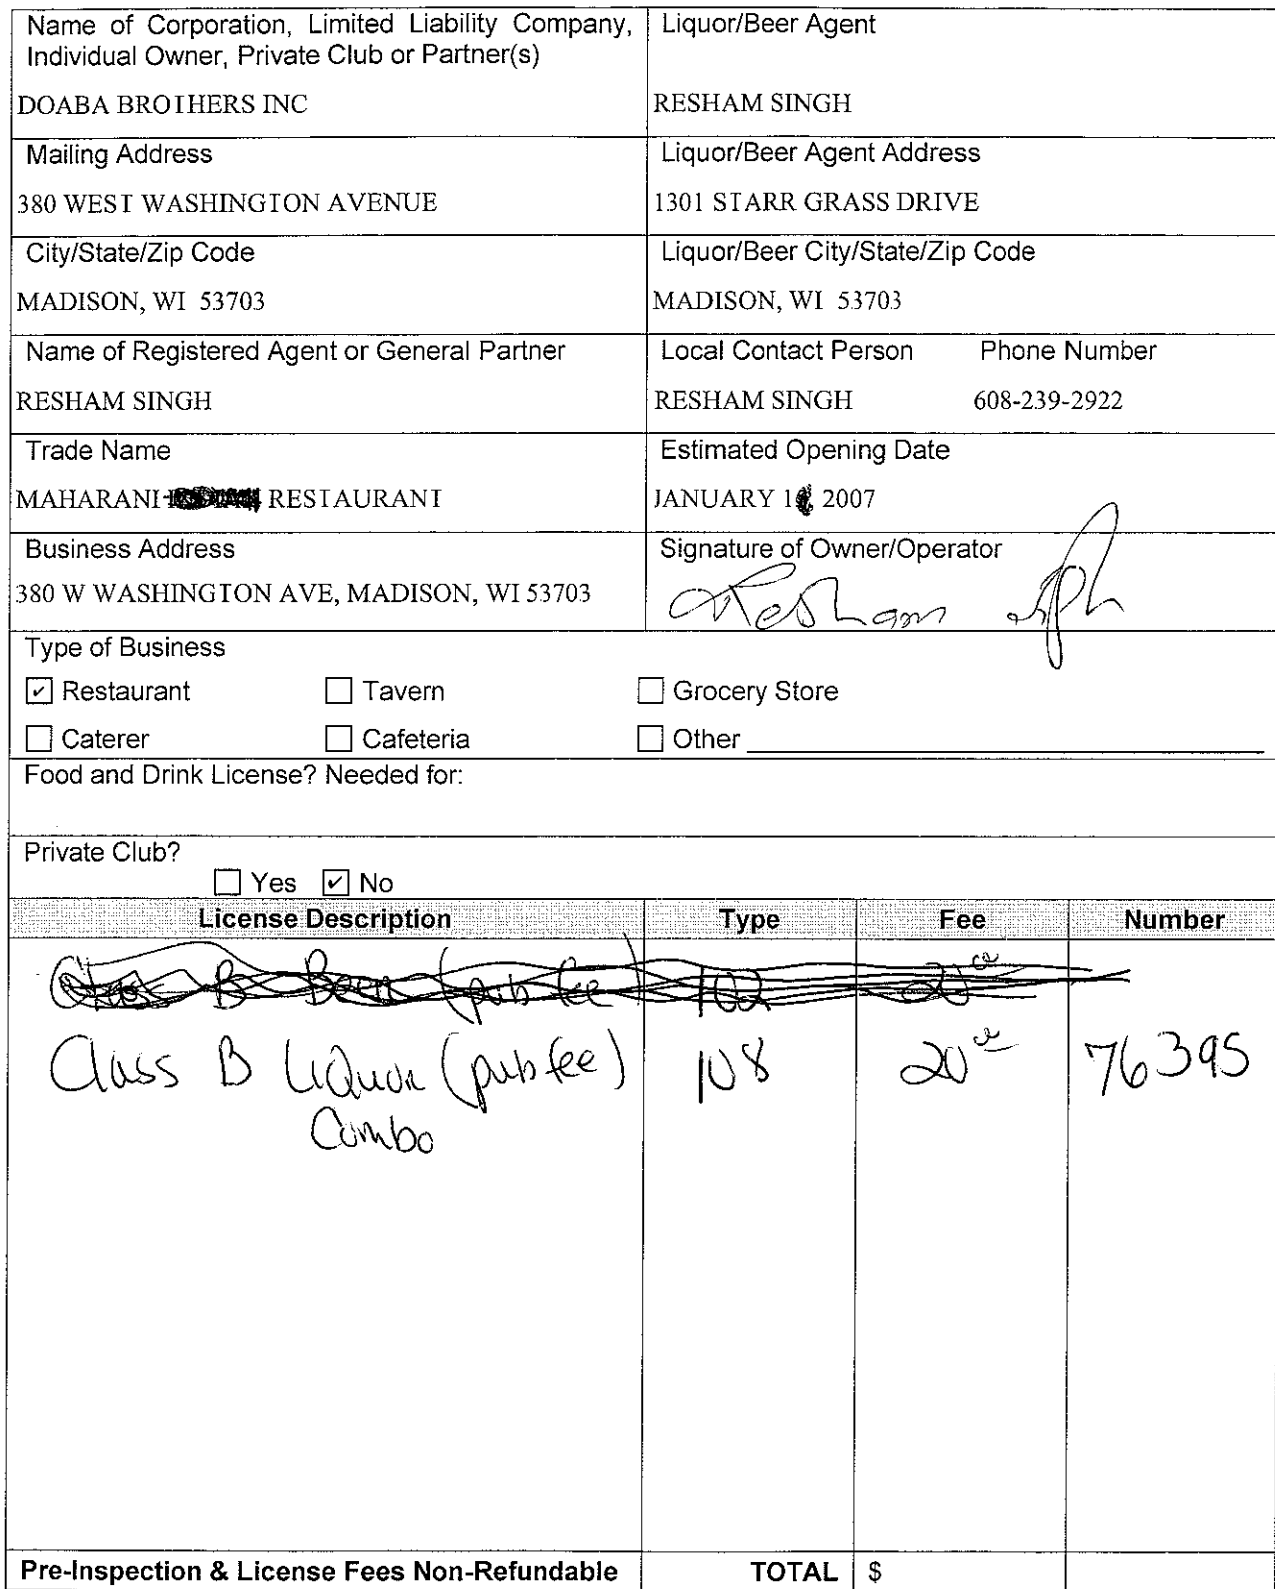 Name of Corporation, Limited Liability Company,
Individual Owner, Private Club or Partner(s)
DOABA BROTHERS INC
Liquor/Beer Agent
RESHAM SINGH
Mailing Address
380 WEST WASHINGTON AVENUE
Liquor/Beer Agent Address
1301 STARR GRASS DRIVE
City/State/Zip Code
MADISON, WI 53703
Liquor/Beer City/State/Zip Code
MADISON, WI 53703
Name of Registered Agent or General Partner
RESHAM SINGH
Local Contact Person Phone Number
RESHAM SINGH 608-239-2922
Trade Name
MAHARANI RESTAURANT
Estimated Opening Date
JANUARY 2007
Business Address
380 W WASHINGTON AVE, MADISON, WI 53703
Signature of Owner/Operator
Resham
Type of Business
☑ Restaurant ☐ Tavern ☐ Grocery Store
☐ Caterer ☐ Cafeteria ☐ Other
Food and Drink License? Needed for:
Private Club?
☐ Yes ☑ No
License Description Type Fee Number
Class B Beer (pub fee) 102 20 00
Class B Liquor (pub fee) 108 20 00 76395
Combo
Pre-Inspection & License Fees Non-Refundable TOTAL $